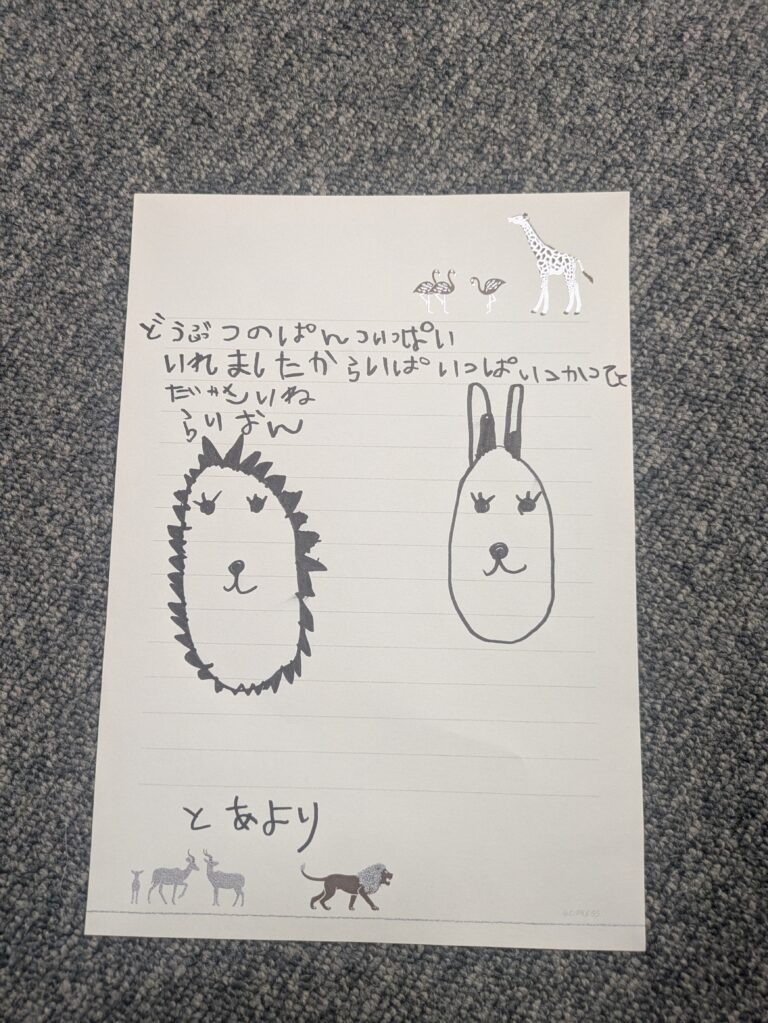 どうぶつのぱんついっぱい
いれましたからいぱいっぱいつかつ
いね
らいおん
とあより
G.C.PRESS